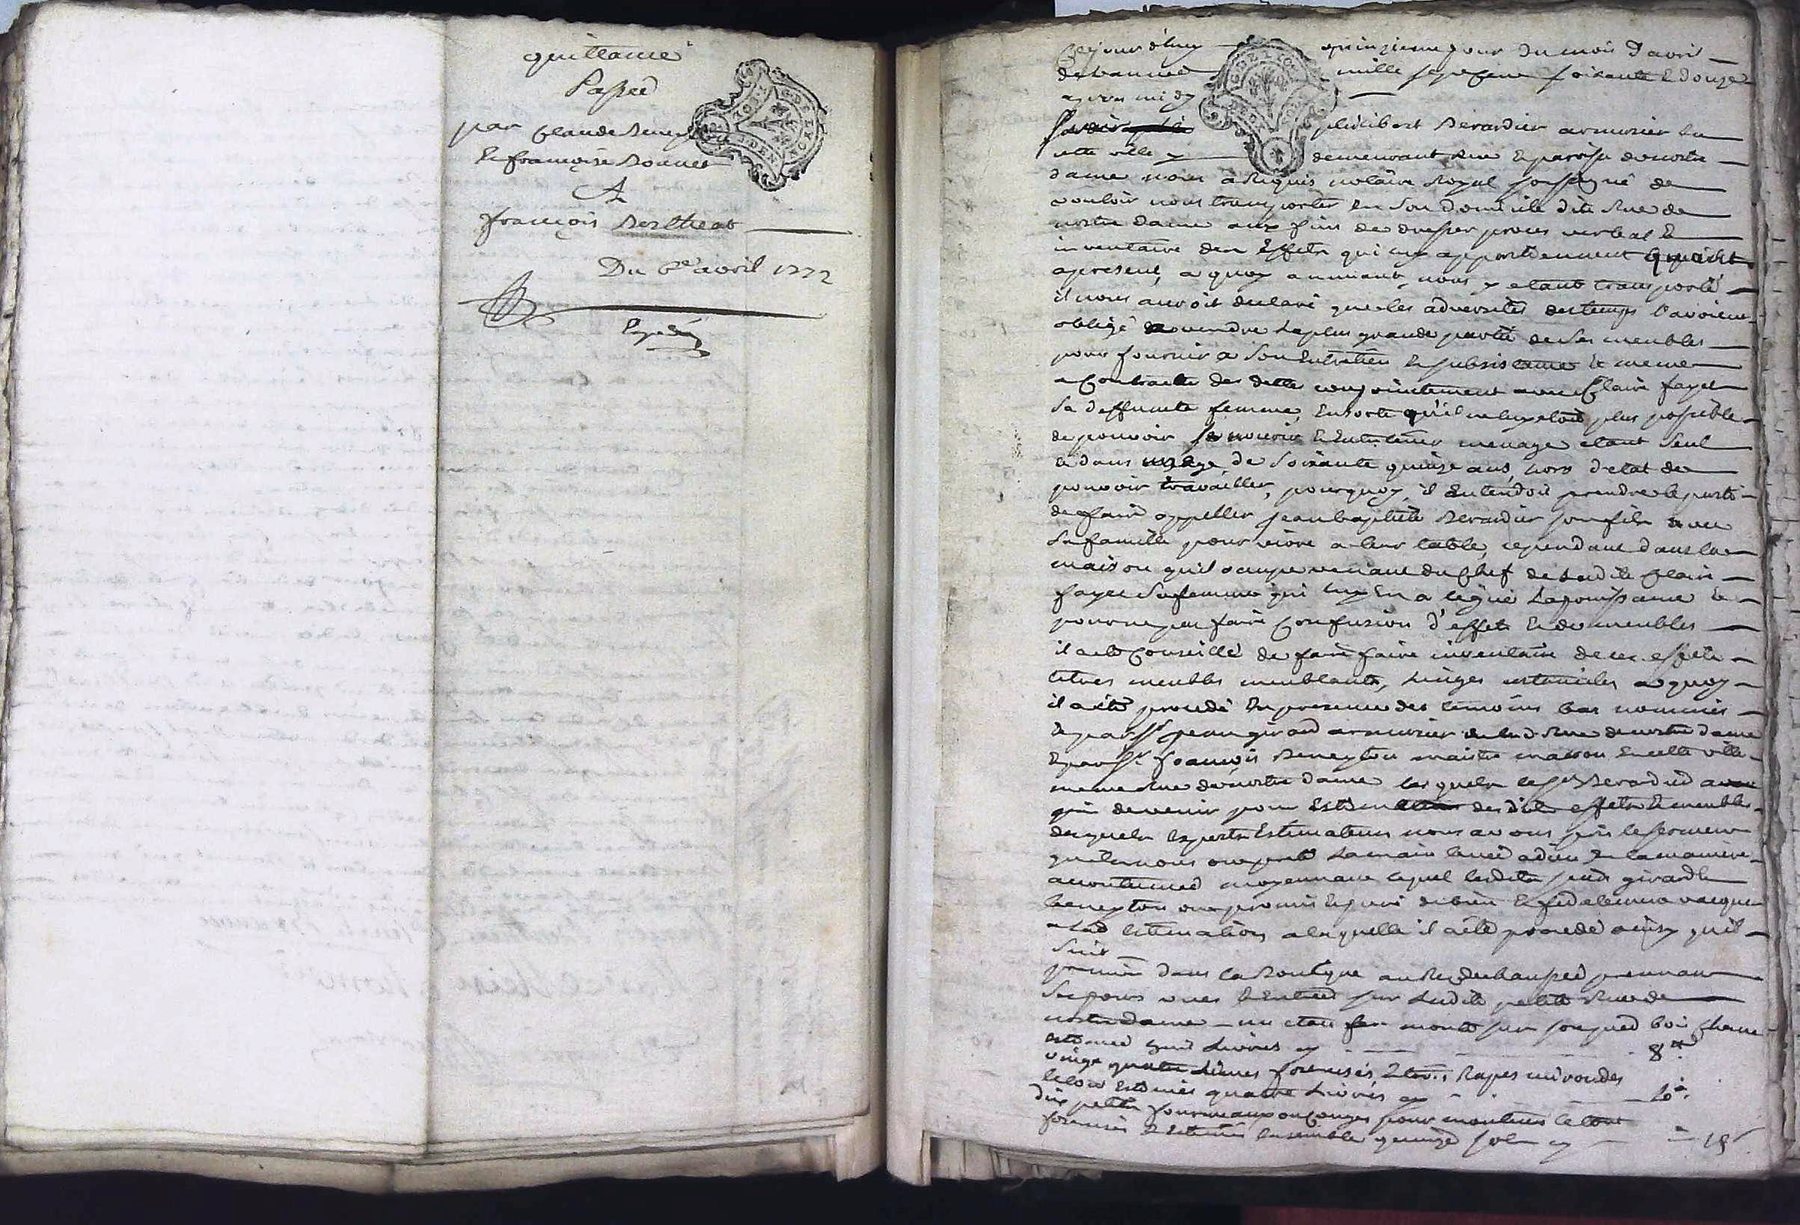 quittance
Passée
par Claude
& françoise Bonnet
A
françois Bertheat
Du 6e avril 1772
Expédiée
Cejourd'huy quinzieme jour du mois d'avril
de l'année mille sept cent soixante & douze
apres midy
philibert Berardier armurier en
cette ville demeurant Rue & paroisse de notre
dame nous a Requis notaire Royal soussigné de
vouloir nous transporter en son domicile dite Rue de
notre dame aux fins de dresser procès verbal &
inventaire des Effets qui luy appartiennent
apresent, a quoy annuant, nous y etant transporté
il nous auroit declaré que les adversités des temps l'avoient
obligé de vendre la plus grande partie de ses meubles
pour fournir a son Entretien & subsistance & meme
a Contracter des dettes conjointement avec Claire fayet
sa deffuncte femme, Ensorte qu'il ne luy etoit plus possible
de pouvoir se nourir & Entretenir menage etant seul
& dans un age de soixante quinze ans, hors d'etat de
pouvoir travailler, pourquoy, il Entendoit prendre le parti
de faire appeller jean baptiste Berardier son fils avec
sa famille pour vivre a leur table, cependant dans la
maison qu'il occupe venant du Chef de ladite Claire
fayet sa femme qui luy En a legué la jouissance &
pour ne pas faire Confusion d'effets & de meubles
il a eté Conseillé de faire faire inventaire de ses effets
titres meubles meublants, Linges ustanciles a quoy
il a eté procedé En presence des temoins bas nommés
& par Sr jean girard armurier de lad. Rue de notre dame
& par Sr françois Beneyton maitre masson En cette ville
meme Rue de notre dame lesquels led. Sr Berardier a
prié de venir pour des dits effets & meubles
desquels Experts Estimateurs nous avons pris le serment
qu'ils nous ont presté la main levée a dieu En la maniere
accoutumée moyennant lequel lesdits srs girard &
beneyton ont promis & juré de bien & fidelement vacquer
a lad Estimation, a laquelle il a été procedé ainsy qu'il
suit
premier dans la Boutique au Rez de chaussée prennant
ses jours vues & Entrée sur ladite petite Rue de
notre dame un etau monté sur son pied bois chene
estimé huit Livres cy 8#
vingt quatre Limes & trois Rapes mi rondes
le tout Estimés quatre Livres cy 4#
dix petits fourneaux pour le tout
& Estimés Ensemble quinze sols cy 15s